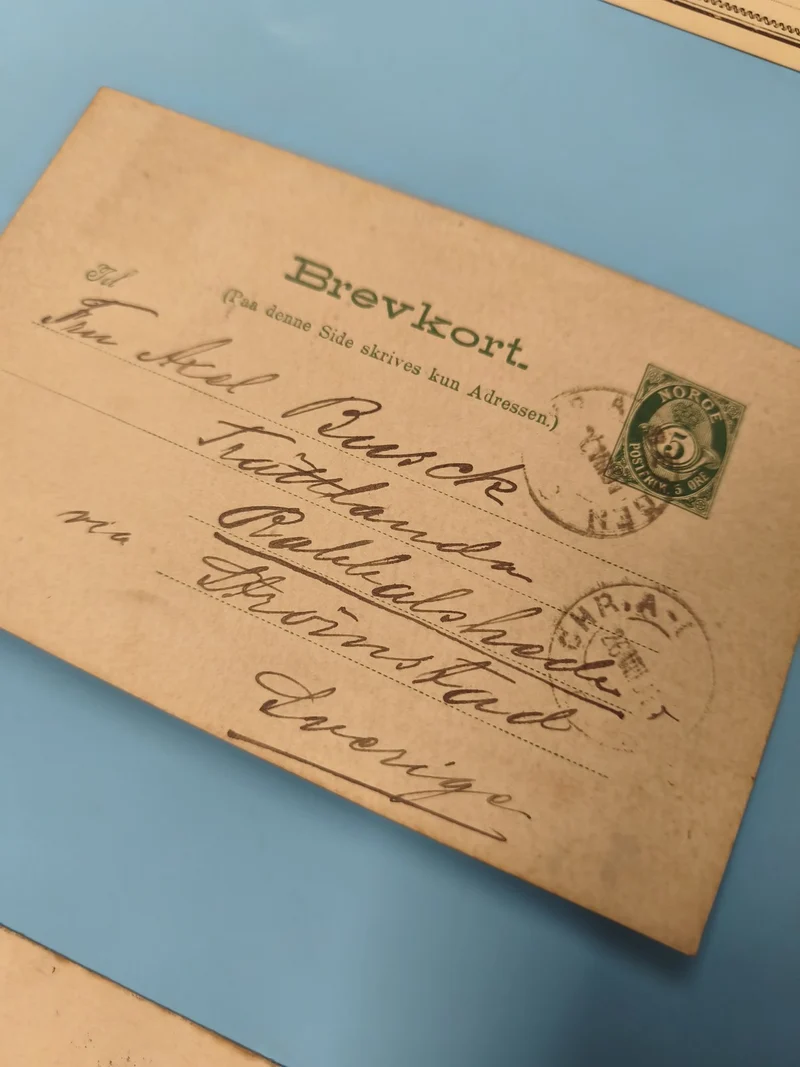 Brevkort.
(Paa denne Side skrives kun Adressen.)
NORGE
5
POSTFRIM. 5 ØRE
Til
Fru Axel Busck
Trättlanda
Rabbalshede
via Strömstad
Sverige
CHR.A-1
26 VIII